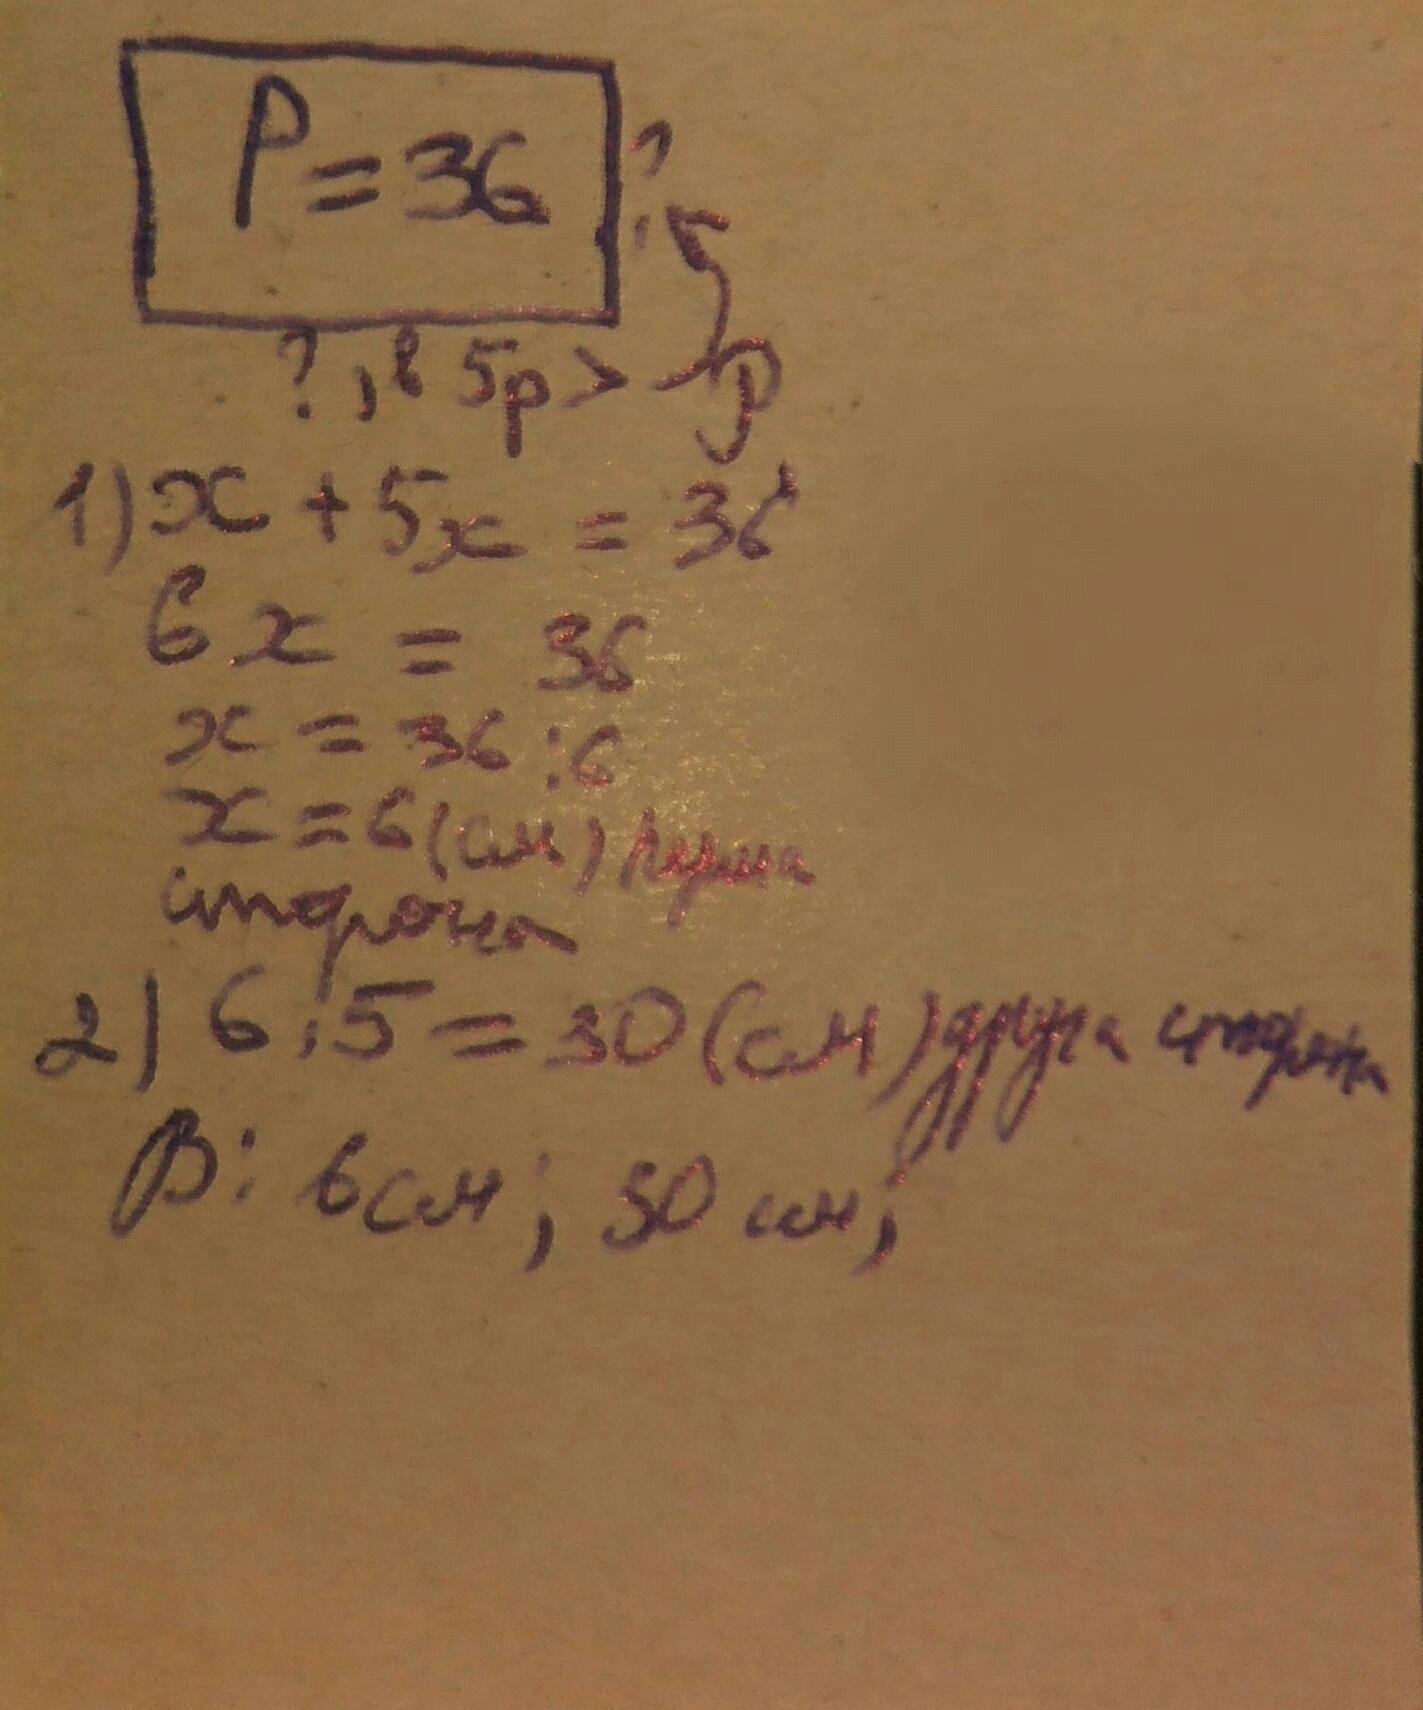 P = 36
?
?, в 5р >
1) x + 5x = 36
6x = 36
x = 36 : 6
x = 6 (см) перша
сторона
2) 6 · 5 = 30 (см) друга сторона
В: 6 см; 30 см;